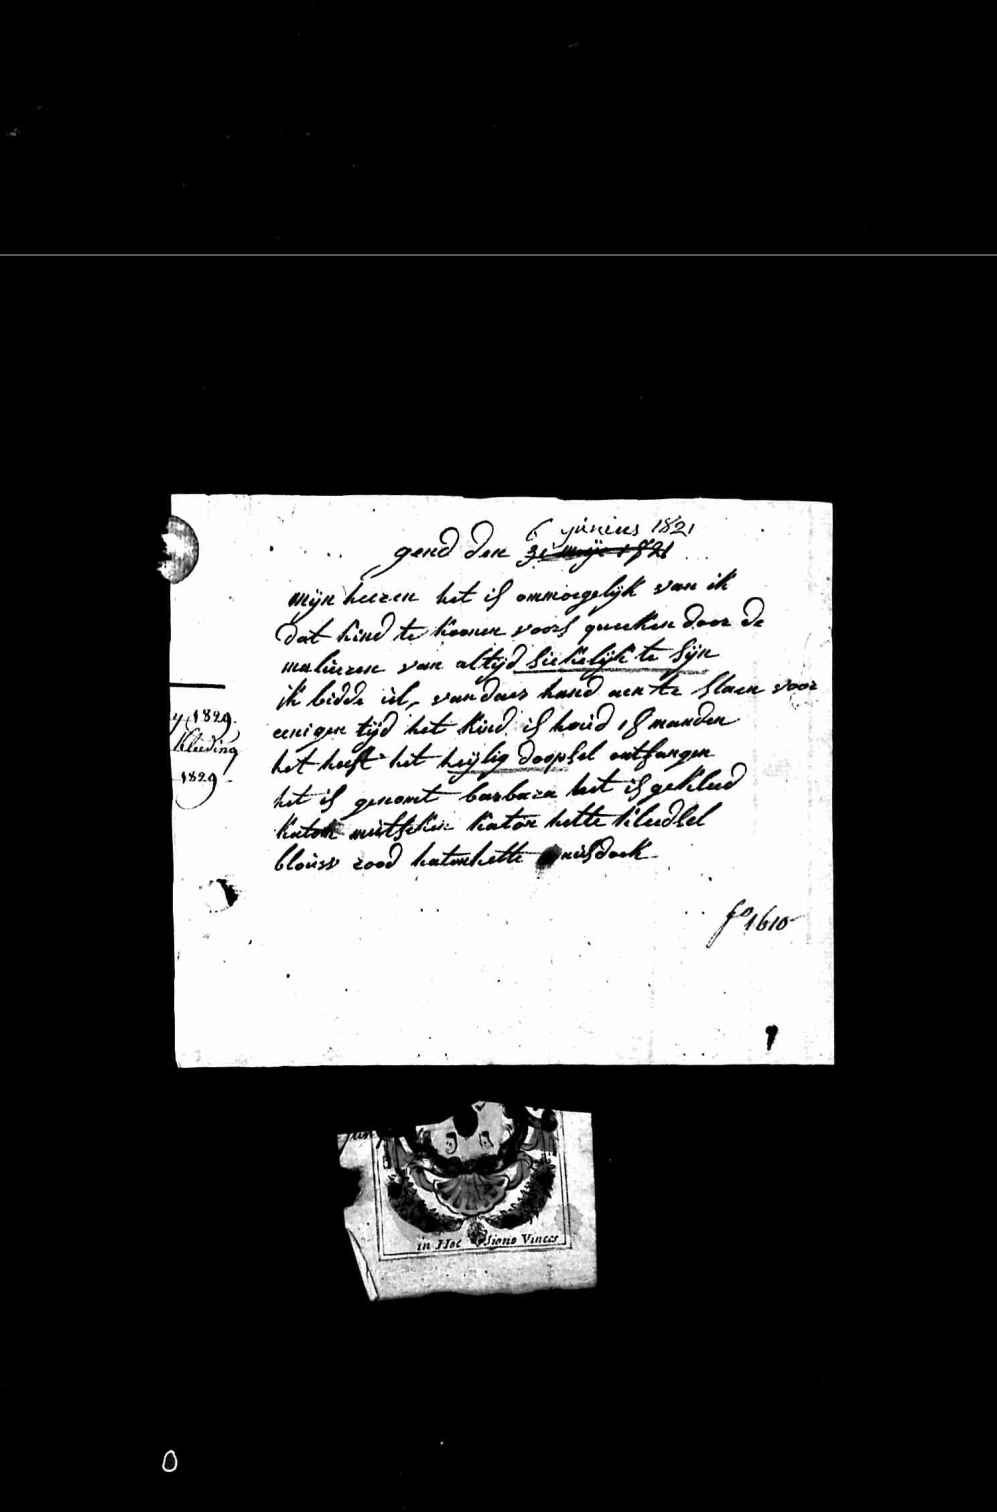 6 junius 1821
gend den 31 mije 1821
mijn heeren het is ommoegelijk van ik
dat kind te koonen voors queeken door de
maliuren van altijd siekelijk te sijn
ik bidde ul, van daer hand aen te slaen voor
eenigen tijd het kind is houd 18 manden
het heeft het heijlig doopsel ontfangen
het is genomt barbara het is gekleed
katon mutseken katon hette kleedsel
blouw rood katonhette neusdoek
y 1829.
kleeding
1829.
fo 1610
in Hoc Signo Vinces
0